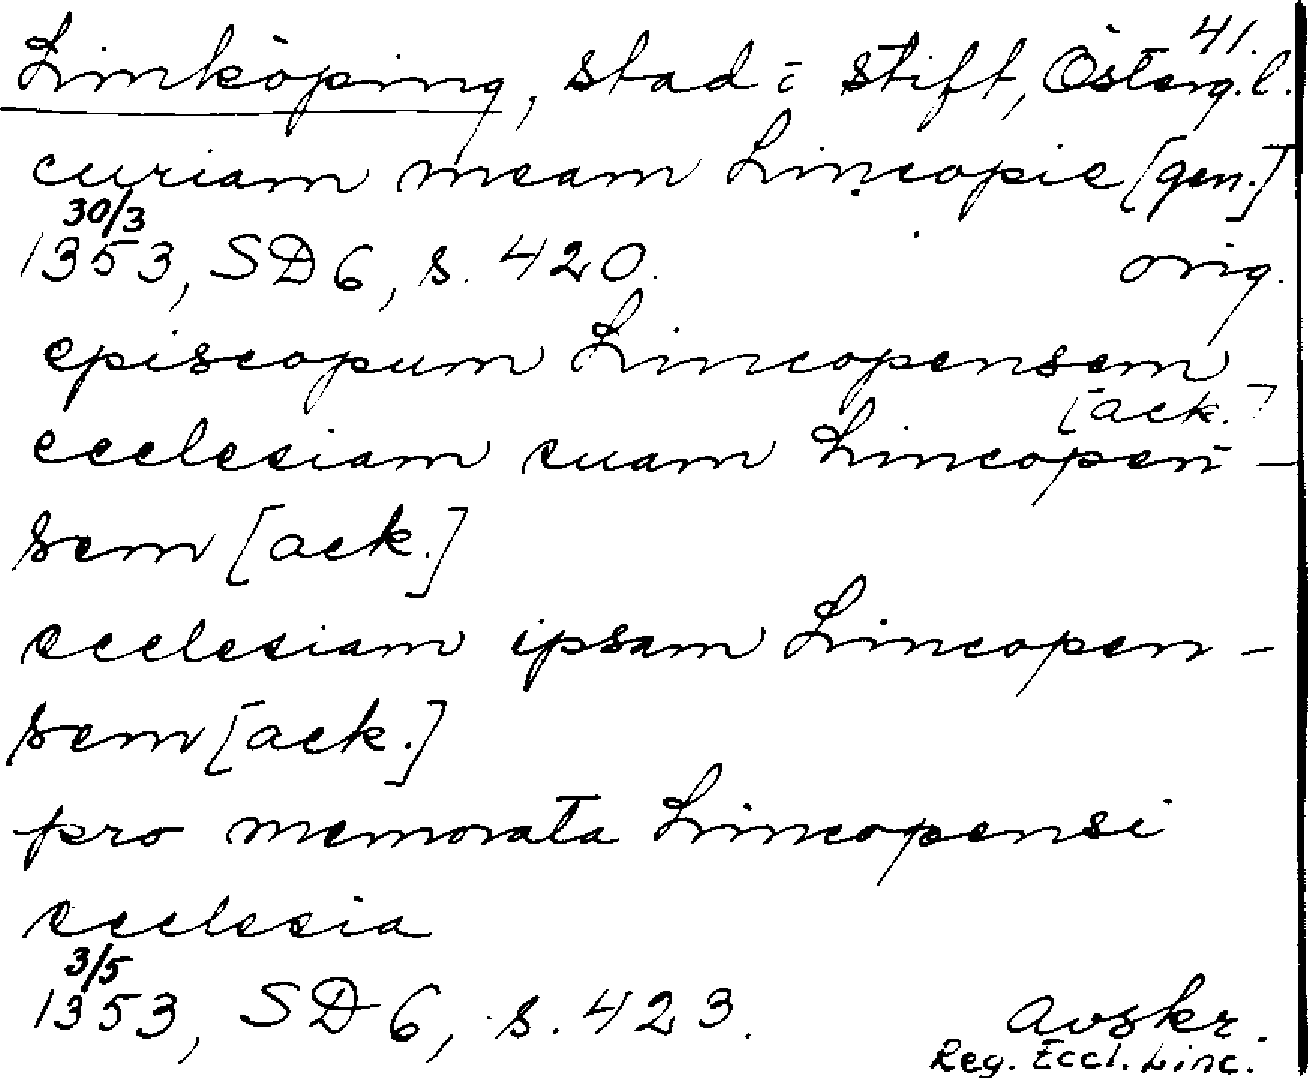 41.
Linköping, stad o stift, Östergl.
curiam meam Lincopie [gen.]
30/3
1353, SD 6, s. 420. orig.
episcopum Lincopensem
[ack.]
ecclesiam suam Lincopen-
sem [ack.]
ecclesiam ipsam Lincopen-
sem [ack.]
pro memorata Lincopensi
ecclesia
3/5
1353, SD 6, s. 423. avskr.
Reg. Eccl. Linc.